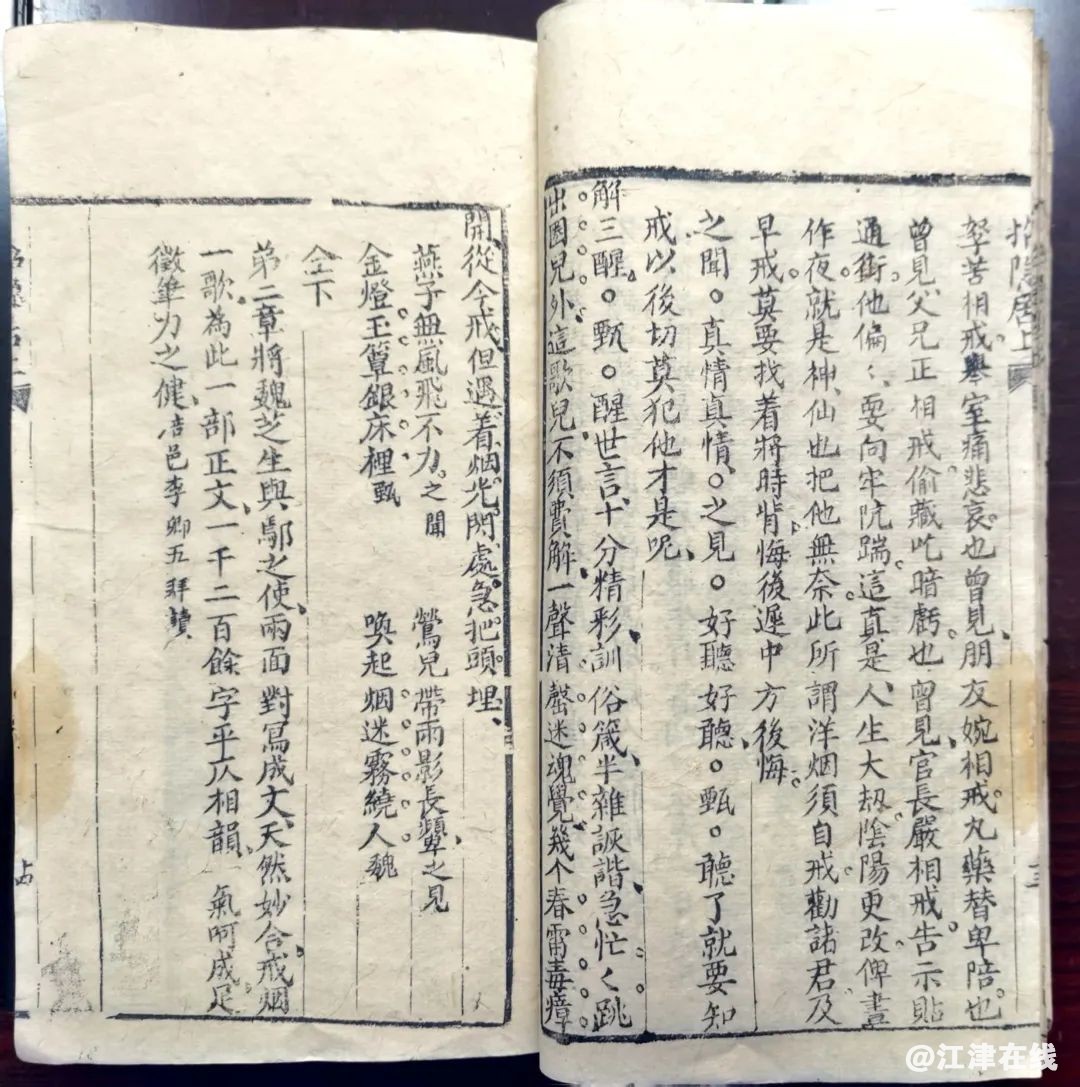 拏苦相戒舉室痛悲哀也曾見朋友婉相戒丸藥替卑陪也
曾見父兄正相戒偷藏吃暗虧也曾見官長嚴相戒告示貼
通街他偏〻要向牢阬踹這真是人生大刼陰陽更改俾晝
作夜就是神仙也把他無奈此所謂洋烟須自戒勸諸君及
早戒莫要找着將時背悔後遲中方後悔
之聞。真情真情。之見。好聽好聽。甄。聽了就要知
戒以後切莫犯他才是呢
解三醒。甄。醒世言十分精彩訓俗箴半雜詼諧急忙〻跳
出圈兒外這歌兒不須費解一聲清罄迷魂覺幾个春雷毒瘴
開從今戒但遇着烟光閃處急把頭埋
燕子無風飛不力之聞 鶯兒帶雨影長顰之見
金燈玉簟銀床裡甄 喚起烟迷霧繞人魏
仝下
弟二章將魏芝生與鄢之使兩面對寫成文天然妙合戒烟
一歌為此一部正文一千二百餘字平仄相韻 氣呵成足
徵筆力之健 邑李卿五拜讀
@江津在线